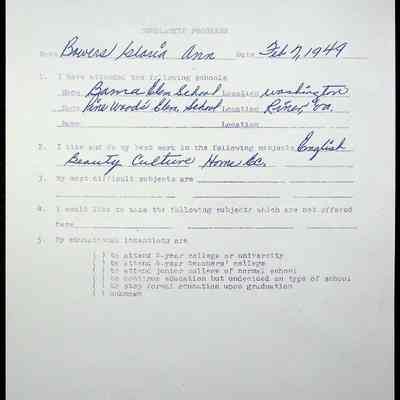 SCHOLASTIC PROGRESS
Name Bowers Gloria Ann Date Feb 7, 1949
1. I have attended the following schools
Name Bama Elem School Location Washington
Name Pine Woods Elem. School Location Riner, Va.
Name Location
2. I like and do my best work in the following subjects English
Beauty Culture Home Ec.
3. My most difficult subjects are
4. I would like to take the following subjects which are not offered
here
5. My educational intentions are
( ) to attend 4-year college or university
( ) to attend 4-year teachers' college
( ) to attend junior college of normal school
( ) to continue education but undecided on type of school
( ) to stop formal education upon graduation
( ) unknown